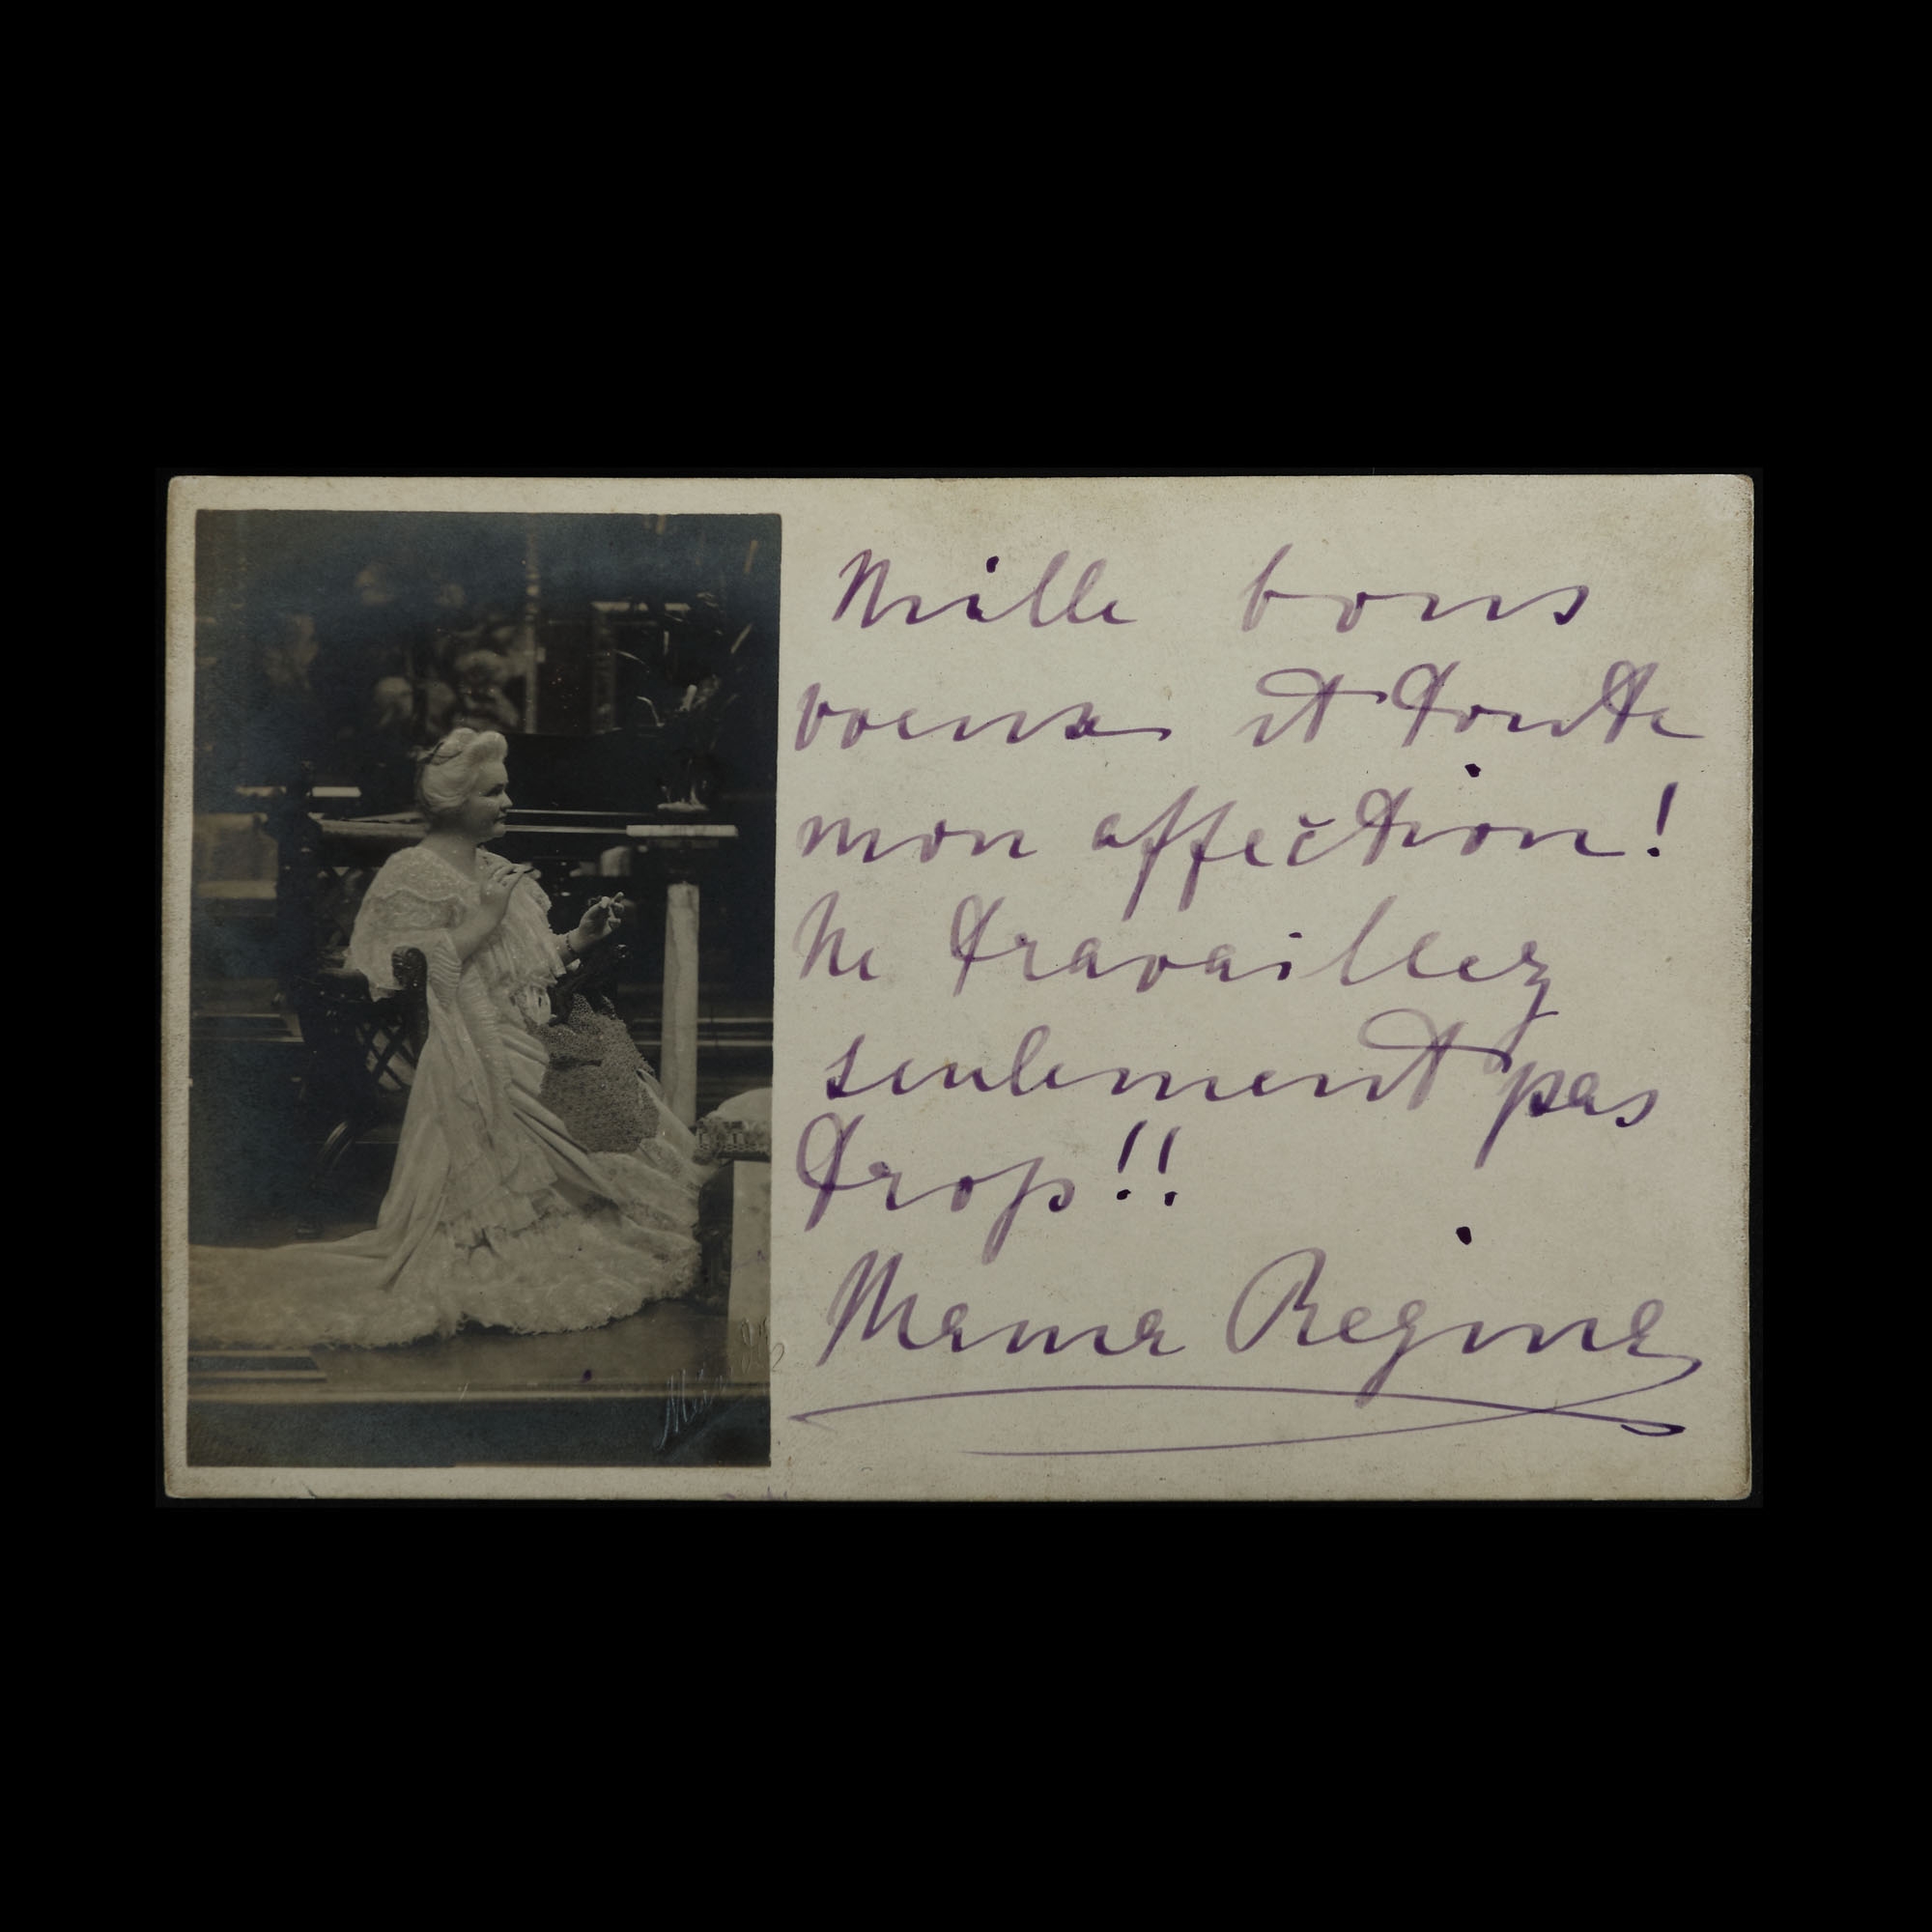 Mille bons
voeux et toute
mon affection!
Ne travaillez
seulement pas
trop!!
Mama Regina